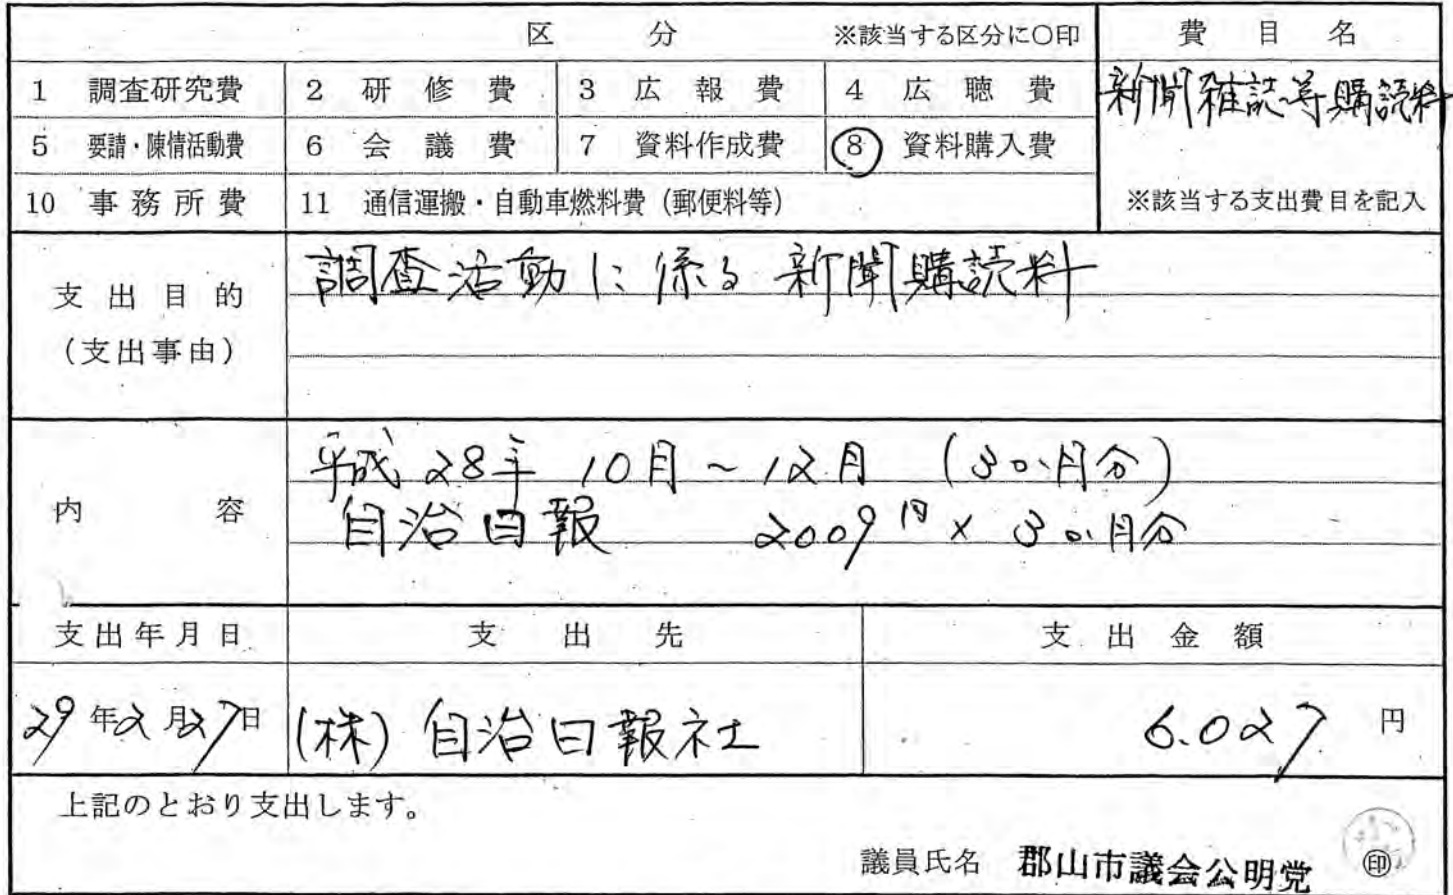 区 分 ※該当する区分に○印 費 目 名
1 調査研究費 2 研 修 費 3 広 報 費 4 広 聴 費 新聞雑誌等購読料
5 要請・陳情活動費 6 会 議 費 7 資料作成費 ⑧ 資料購入費
10 事務所費 11 通信運搬・自動車燃料費(郵便料等) ※該当する支出費目を記入
支出目的 調査活動に係る新聞購読料
(支出事由)
平成28年 10月~12月 (3ヶ月分)
内 容 自治日報 2009円 × 3ヶ月分
支出年月日 支 出 先 支 出 金 額
29年2月27日 (株)自治日報社 6.027 円
上記のとおり支出します。
議員氏名 郡山市議会公明党 ㊞